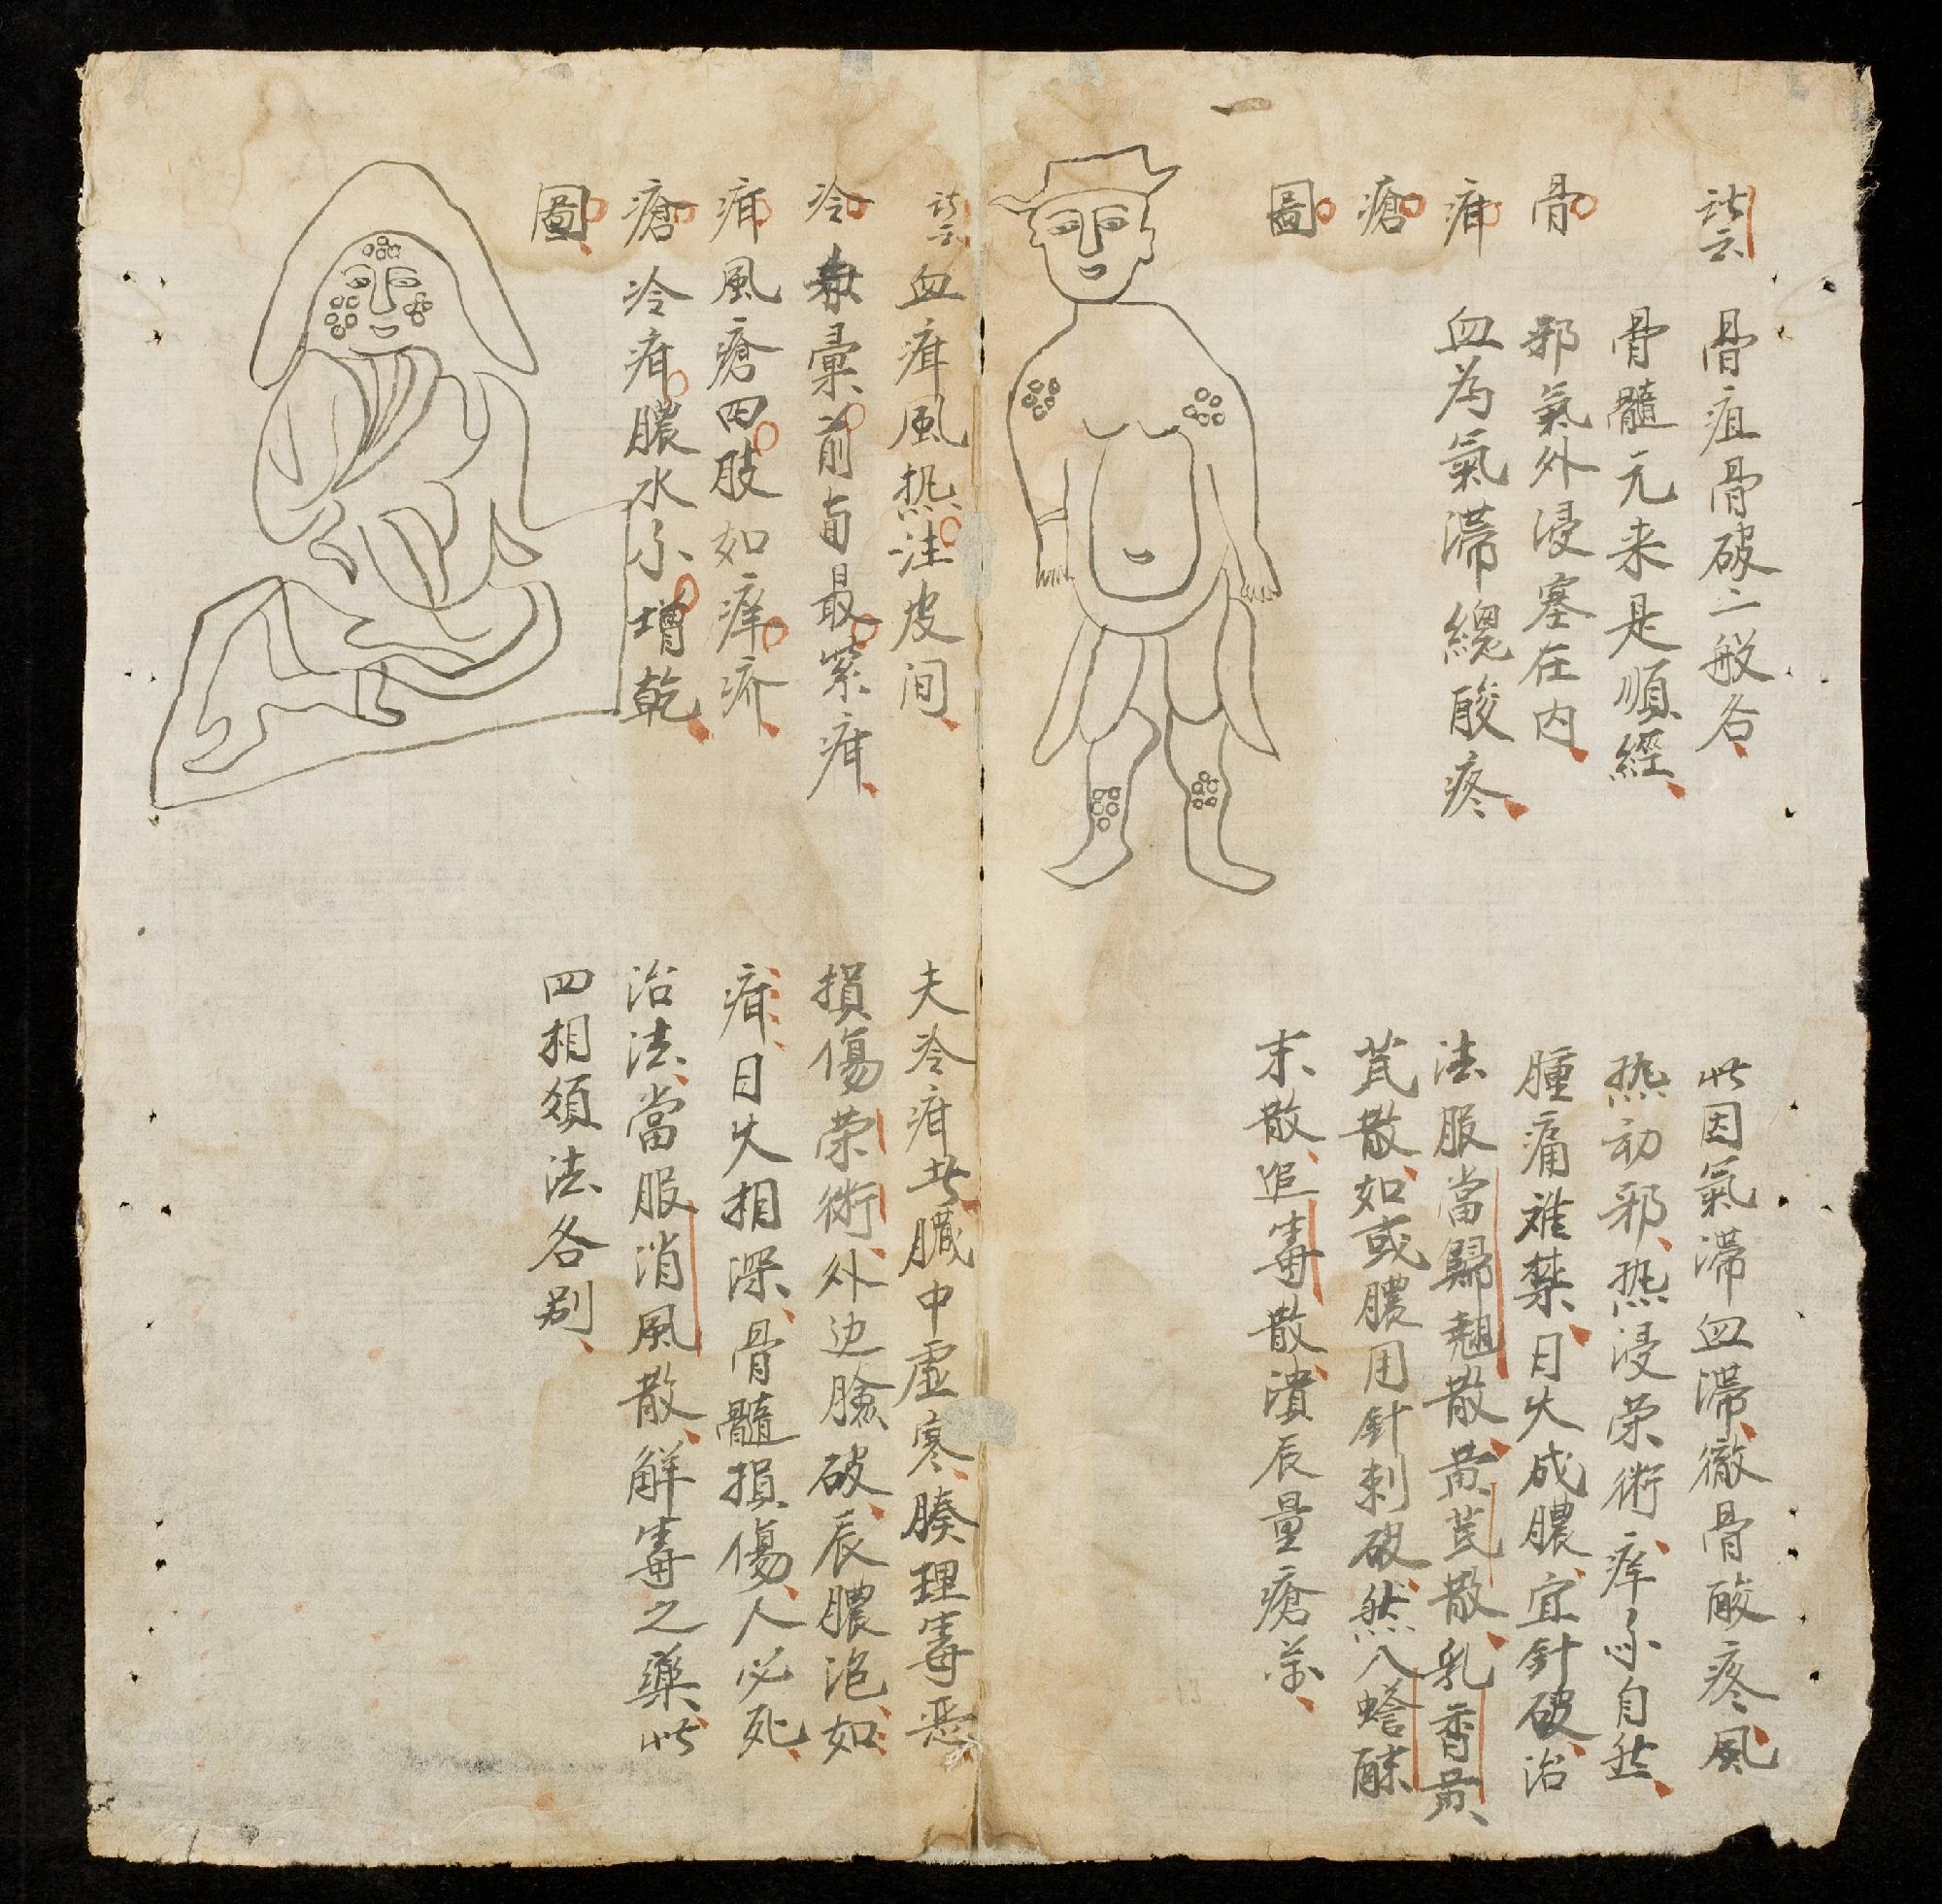 骨疳瘡圖
訣云
骨疽骨破二般名
骨髓元来是順經
邪氣外浸塞在内
血為氣滯緫酸疼
此因氣滯血滯徹骨酸疼風
热初邪热浸荣術痒不自然
腫痛难禁日久成膿宜針破治
法服當歸翹散黄芪散乳香黄
芪散如或膿用針刺破然入蟾酥
末散追毒散潰辰量瘡
冷疳瘡圖
訣云
血疳風热注皮间
最累疳
風瘡四肢如痒疥
冷疳膿水不增乾
夫冷疳者臓中虛寒腠理毒惡
損傷荣術外边臉破辰膿泡如
疳日久相深骨髓損傷人必死
治法當服消風散解毒之藥此
四相須法各别